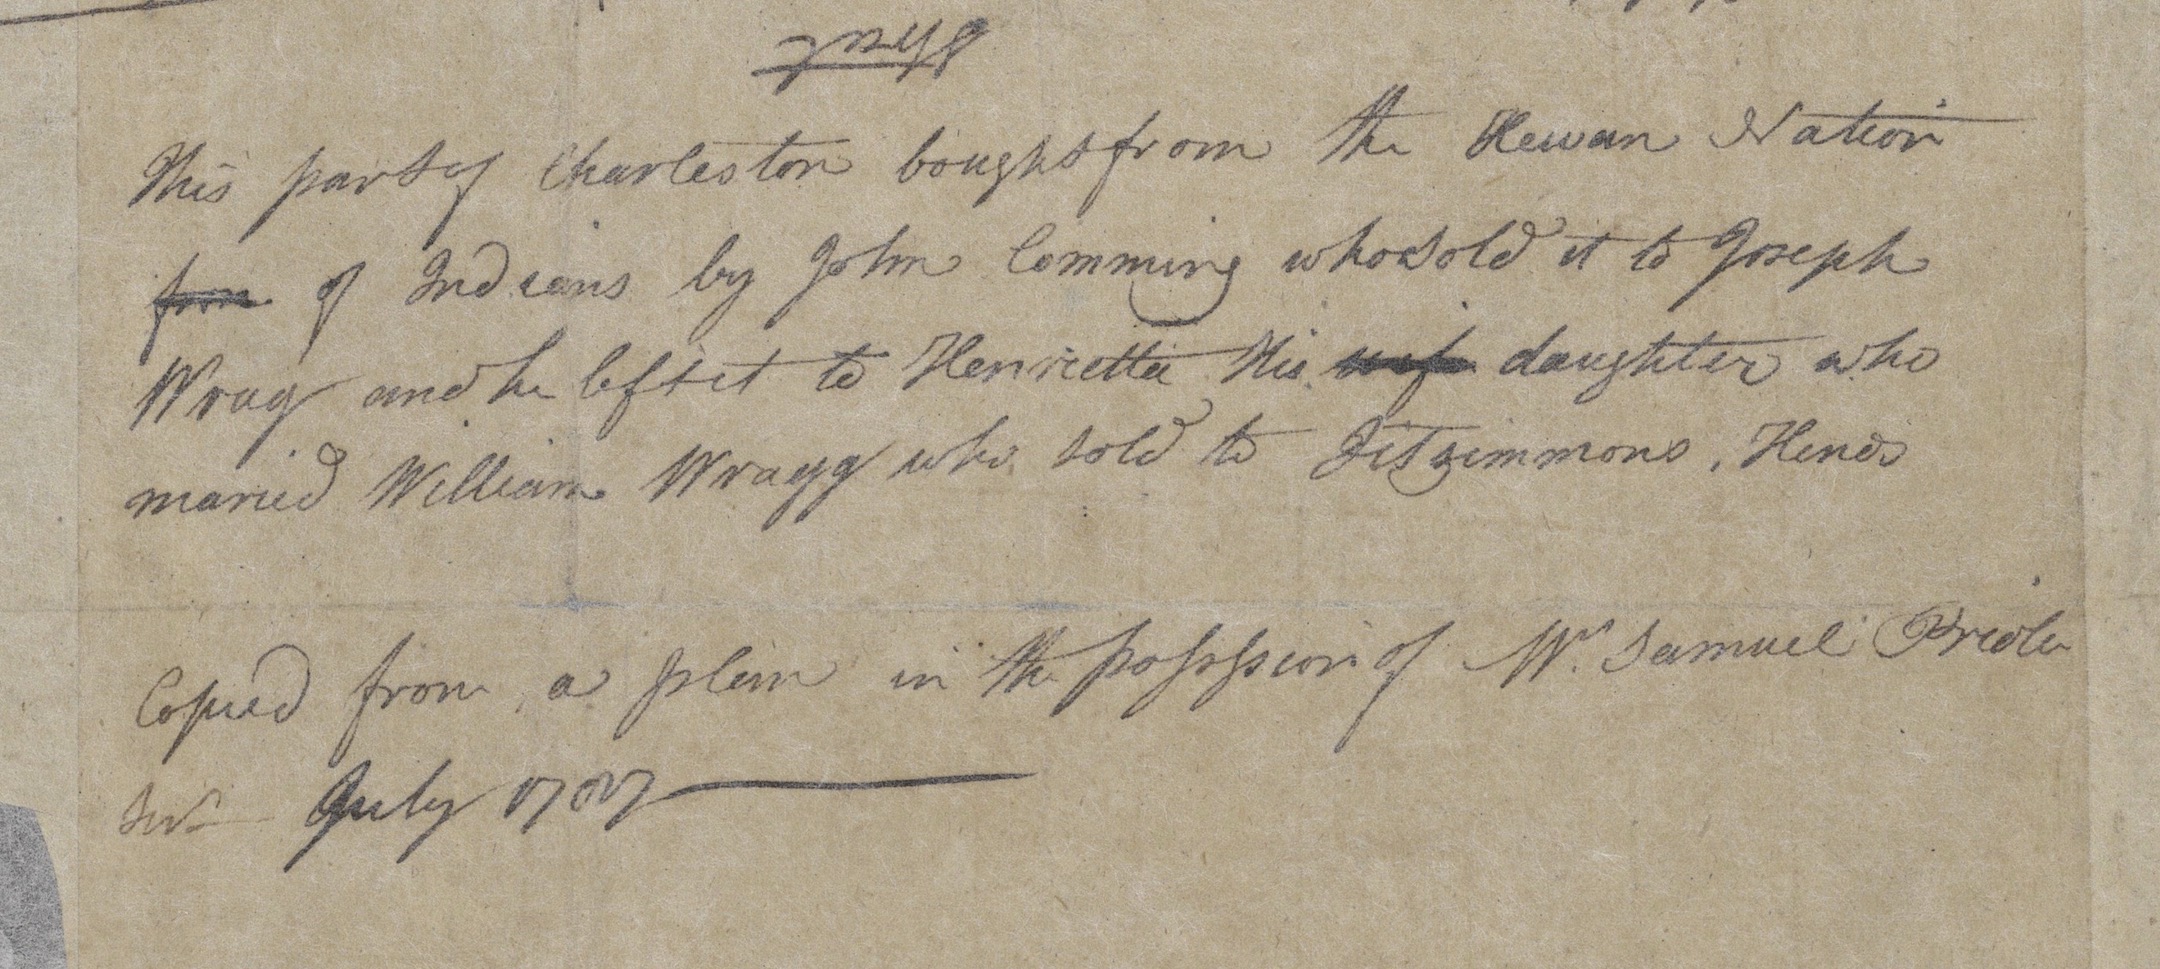 This part of Charleston bought from the Kewan Nation
from of Indians by John Comming who sold it to Joseph
Wrag and he left it to Henrietta His wife daughter who
maried William Wragg who sold to Fitzsimmons.
Copied from a plan in the possession of Mr. Samuel
July